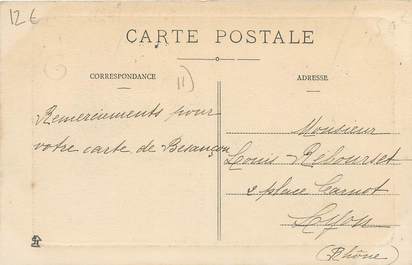 12€
CARTE POSTALE
CORRESPONDANCE
11)
ADRESSE
Remerciements pour
votre carte de Besançon
Monsieur
Louis Rebourset
2 place Carnot
Lyon
(Rhône)